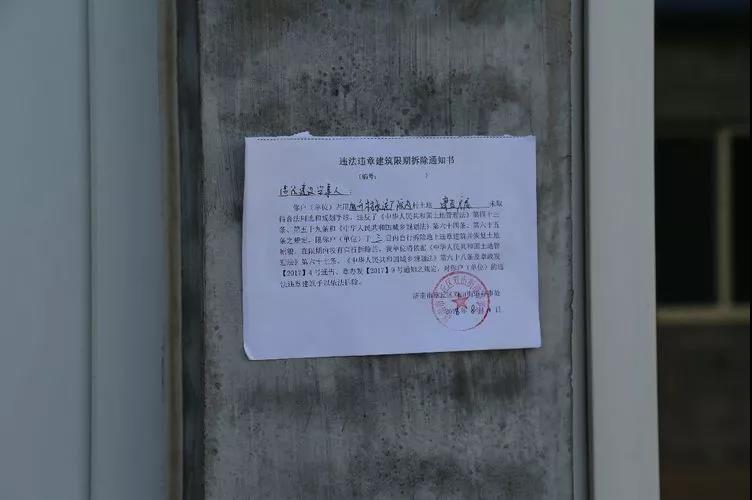 违法违章建筑限期拆除通知书
(编号: )
违法建设当事人:
你户(单位)占用 村土地 未取
得合法用地和规划手续,违反了《中华人民共和国土地管理法》第四十三
条、第五十九条和《中华人民共和国城乡规划法》第六十四条、第六十五
条之规定,限你户(单位)于三日内自行拆除地上违章建筑并恢复土地
原貌。在限期内没有自行拆除,我单位将依据《中华人民共和国土地管
理法》第六十七条、《中华人民共和国城乡规划法》第六十八条及章政发
【2017】4号通告、章办发【2017】9号通知之规定,对你户(单位)的违
法违章建筑予以依法拆除。
济南市章丘区双山街道办事处
2018年8月 日